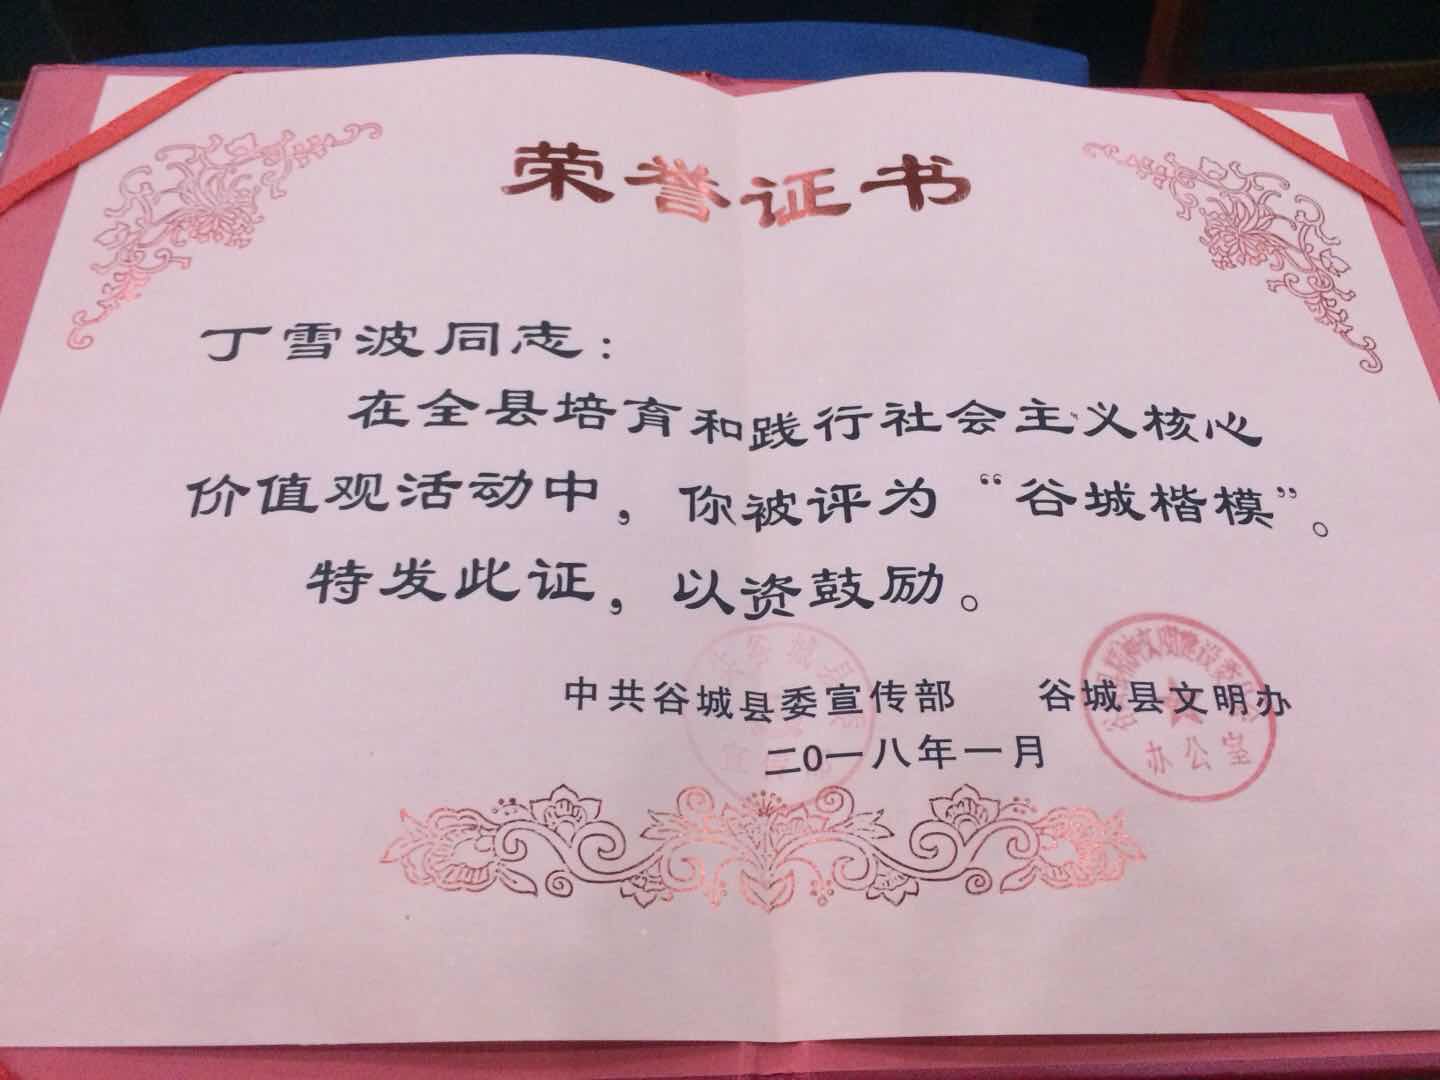 荣誉证书
丁雪波同志：
在全县培育和践行社会主义核心
价值观活动中，你被评为“谷城楷模”。
特发此证，以资鼓励。
中共谷城县委宣传部 谷城县文明办
二0一八年一月
谷城县
办公室